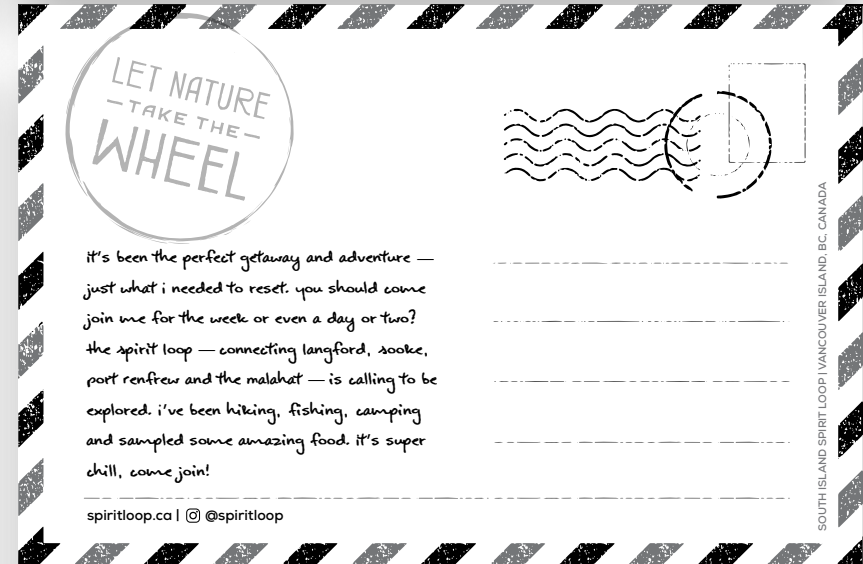 LET NATURE
— TAKE THE —
WHEEL
it's been the perfect getaway and adventure —
just what i needed to reset. you should come
join me for the week or even a day or two?
the spirit loop — connecting langford, sooke,
port renfrew and the malahat — is calling to be
explored. i've been hiking, fishing, camping
and sampled some amazing food. it's super
chill, come join!
spiritloop.ca | @spiritloop
SOUTH ISLAND SPIRIT LOOP | VANCOUVER ISLAND, BC, CANADA